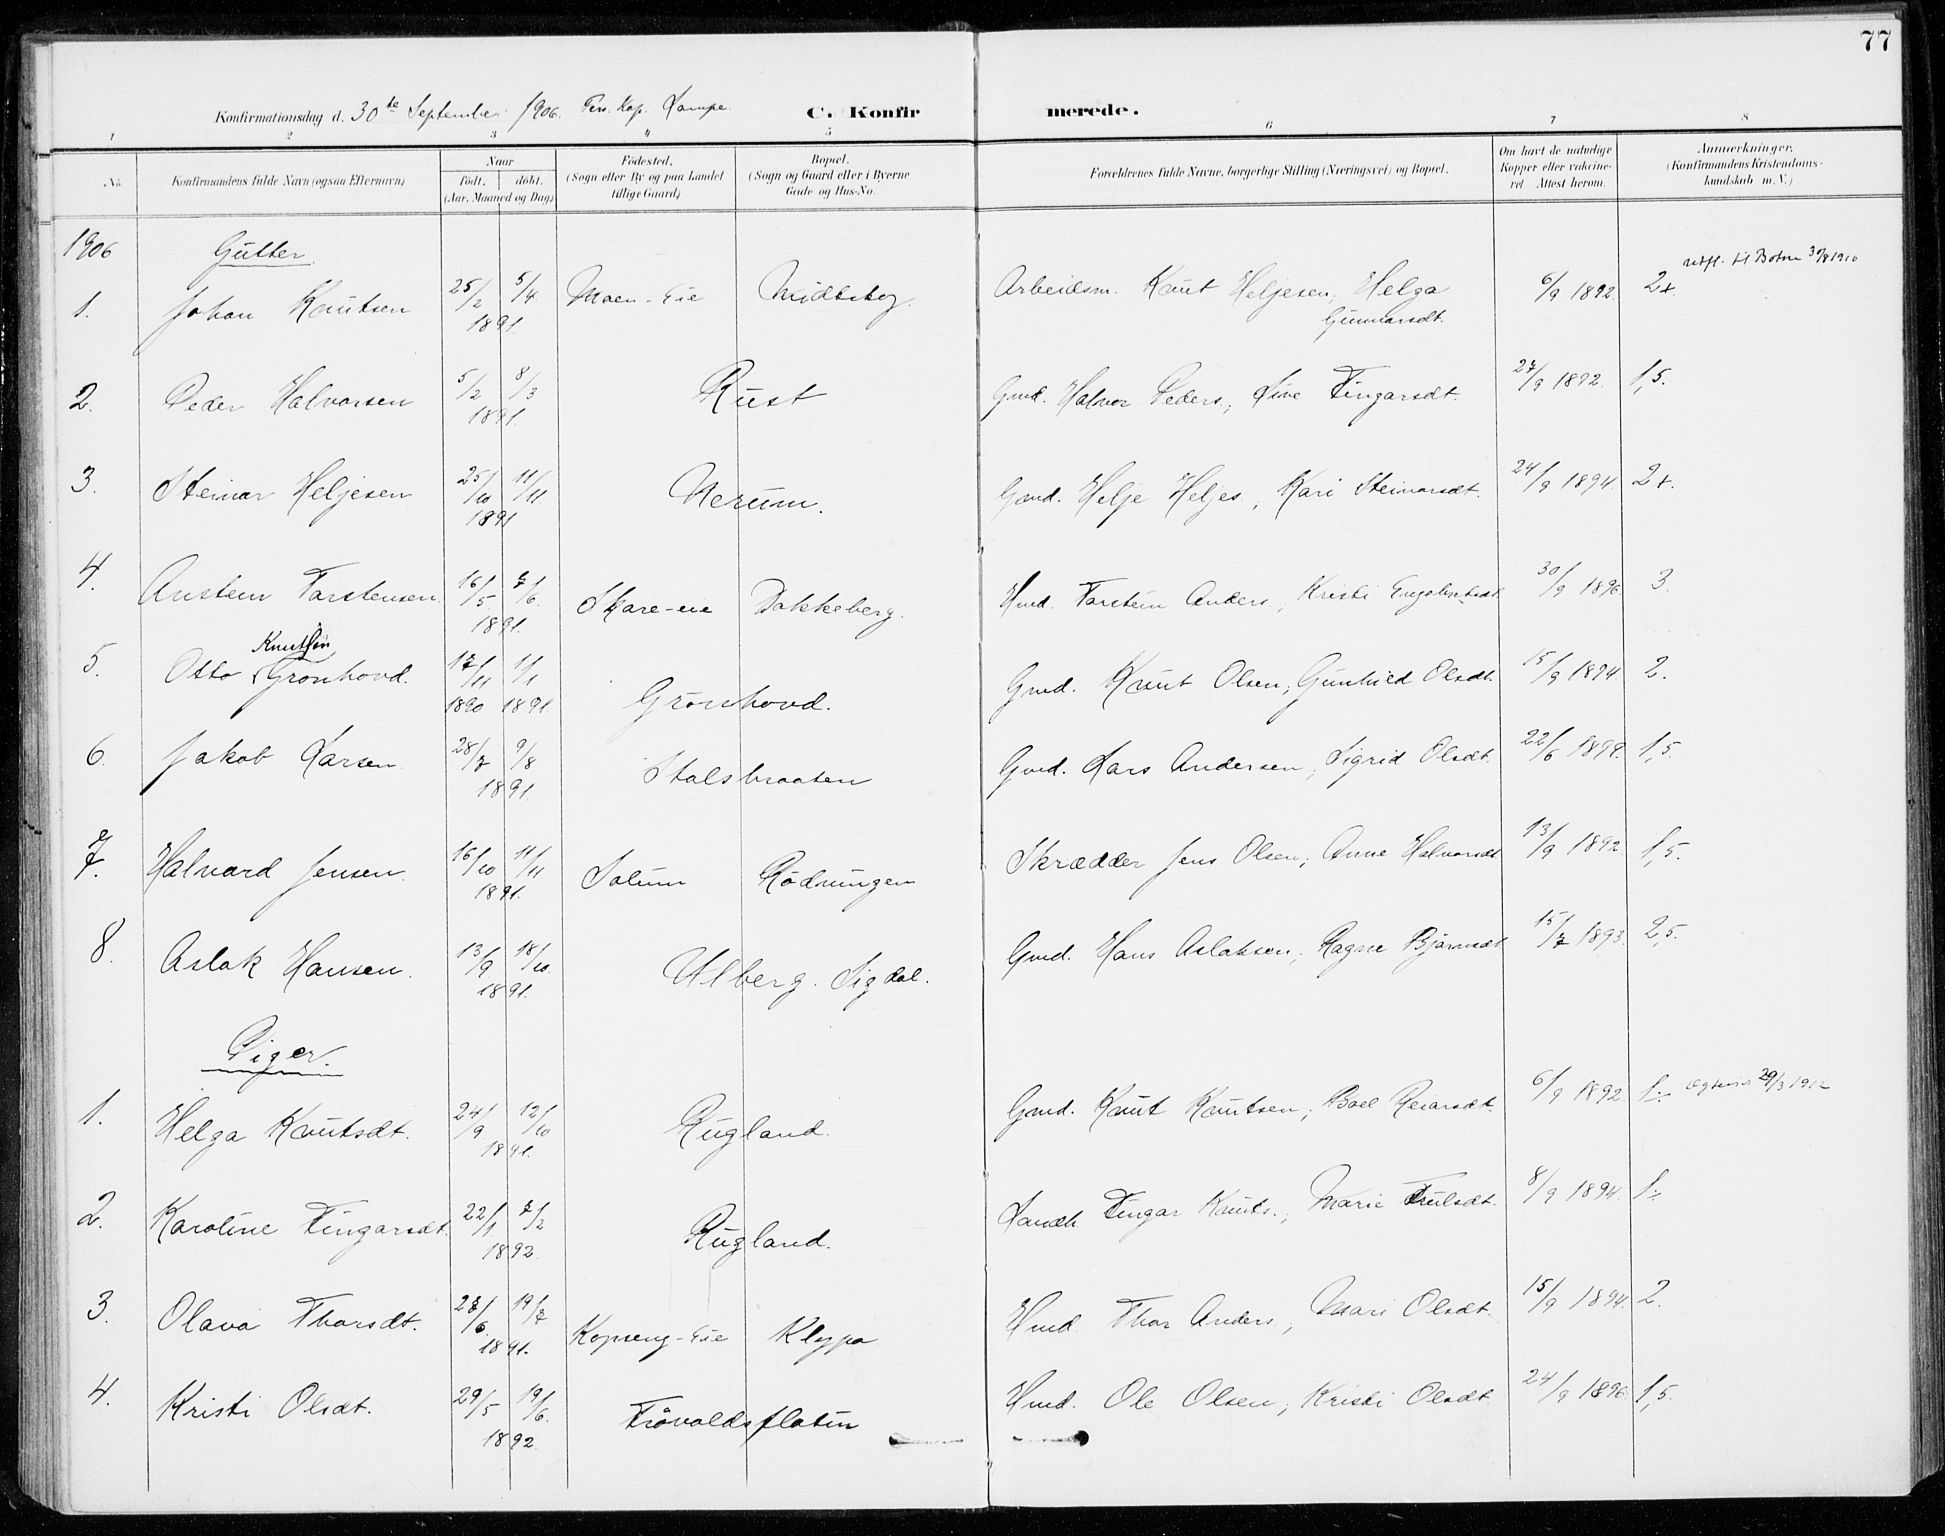 77
Konfirmationsdag d. 30te September 1906. Pers. Kap. Lampe. C. Konfirmerede.
1 2 3 4 5 6 7 8
No. Konfirmandens fulde Navn (ogsaa Efternavn) Naar født. døbt. (Aar, Maaned og Dag) Fødested. (Sogn eller By og paa Landet tillige Gaard) Bopæl. (Sogn og Gaard eller i Byerne Gade og Hus-No. Forældrenes fulde Navne, borgerlige Stilling (Næringsvei) og Bopæl. Om havt de naturlige Kopper eller vakcineret Attest herom. Anmærkninger. (Konfirmandens Kristendomskundskab m. V.)
1906 Gutter.
1. Johan Knutsen 25/2 5/4 1891. Moen-Eie Midtskog. Arbeidsm. Knut Heljesen, Helga Gunnarsdt. 6/9 1892. 2+. utfl. til Botne 3/8 1910
2. Peder Halvorsen 5/2 8/3 1891. Rust Gmd. Halvor Peders., Live Tingarsdt. 27/9 1892. 1,5.
3. Steinar Heljesen 25/10 11/11 1891 Nerum. Gmd. Helje Heljes., Kari Steinarsdt. 24/9 1894. 2+.
4. Anstein Torstensen 16/5 7/6. 1891. Skare-eie Bakkeberg. Hmd. Torstein Anders., Kristi 30/9 1896. 3.
5. Otto Knutsøn Grønhovd. 17/11 1890 11/1 1891. Grønhovd. Gmd. Knut Olsen, Gunhild Olsdt. 15/9 1894 2.
6. Jakob Larsen. 28/7 9/8 1891. Stalsbraaten Gmd. Lars Andersen, Sigrid Olsdt. 22/6 1892. 1,5.
7. Halvard Jensen. 16/10 11/11 1891. Solum Rødningen Skrædder Jens Olsen, Anne Halvorsdt 13/9 1892 1,5.
8. Aslak Hansen. 13/9 18/10. 1891. Ulberg. Sigdal. Gmd. Hans Aslaksen, Ragne Bjørnsdt 15/7 1893. 2,5.
Piger.
1. Helga Knutsdt. 24/9 12/10 1891. Rugland. Gmd. Knut Knutsen, Boel Reiarsdt. 6/9 1892. 1÷ 29/3 1912
2. Karoline Tingarsdt. 22/1 7/2 1892. Rugland. Landh. Tingar Knuts., Marie Trulsdt. 8/9 1894. 1÷
3. Olava Thorsdt. 27/6. 19/7 1891. Kopseng-Eie Klypa. Hmd. Thor Anders., Mari Olsdt. 15/9 1894. 2.
4. Kristi Olsdt. 29/5 19/6. 1892. Trövoldsflatin Hmd. Ole Olsen, Kristi Olsdt. 24/9 1896. 1,5.